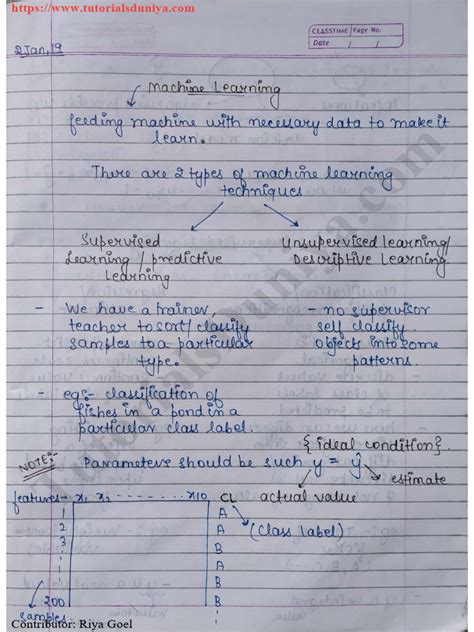 https://www.tutorialsduniya.com
CLASSTIME Page No.
Date / /
2 Jan, 19
Machine Learning
feeding machine with necessary data to make it
learn.
There are 2 types of machine learning
techniques
Supervised
Learning / predictive
Learning
Unsupervised learning/
Descriptive Learning
- We have a trainer,
teacher to sort/classify
samples to a particular
type.
- no supervisor
self classify
objects into some
patterns.
- eg:- classification of
fishes in a pond in a
particular class label.
{ideal condition}
NOTE:- Parameters should be such y = ŷ
estimate
actual value
features- x1 x2 - - - - - - - x10 CL
1 A
2 A
3 B
(Class label)
A
B
B
200 B
samples
tutorialsduniya.com
Contributor: Riya Goel